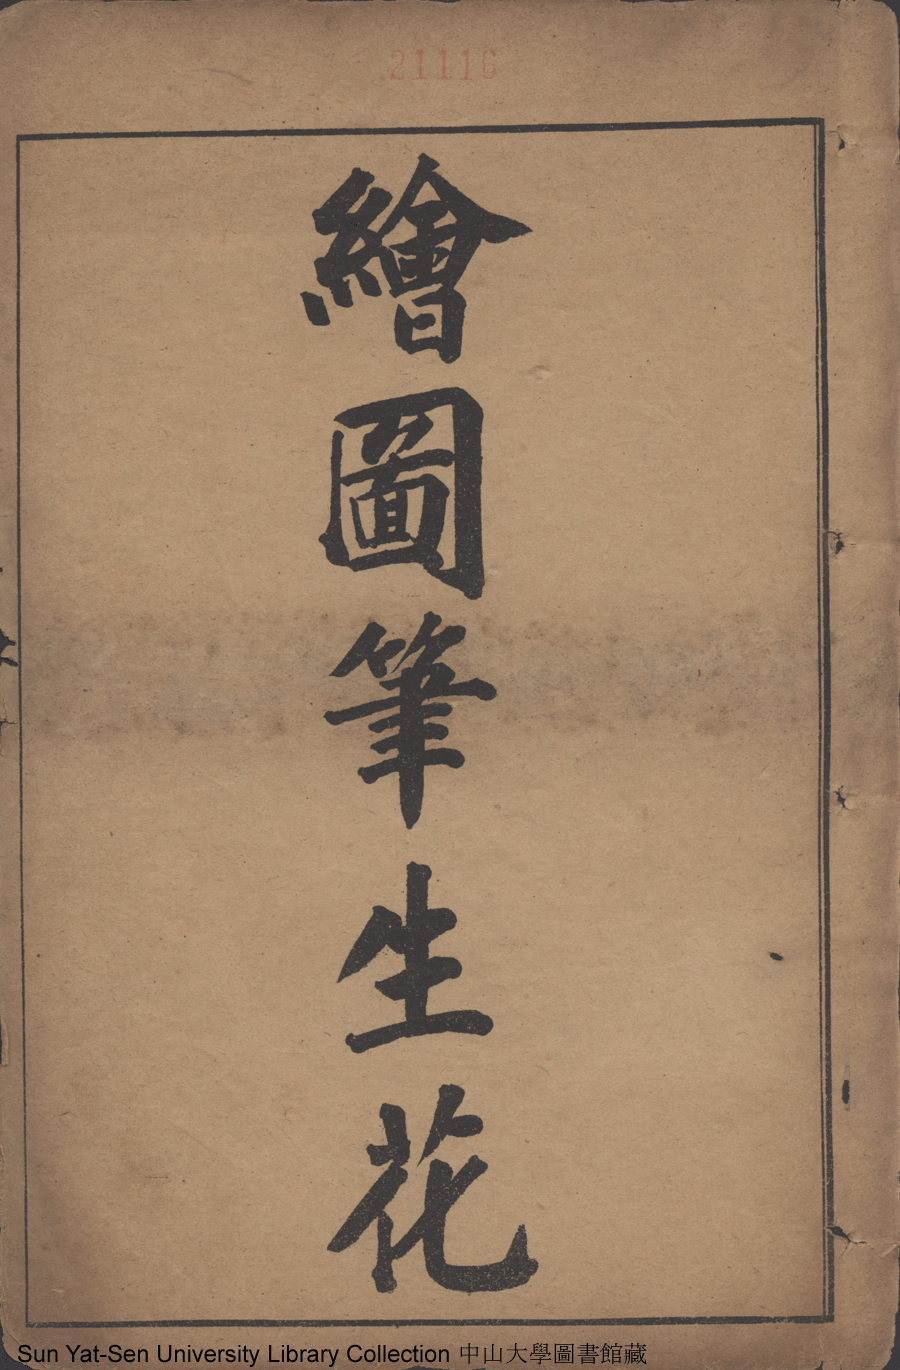 21116
繪圖筆生花
Sun Yat-Sen University Library Collection 中山大學圖書館藏